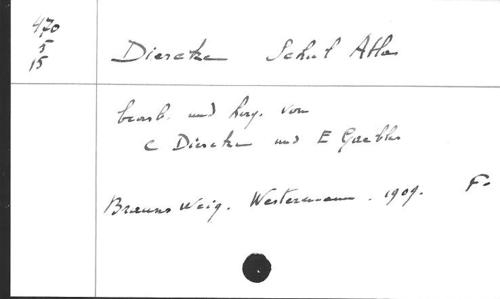 470
5
15
Diercke Schul Atlas
bearb. und hrg. von
C Diercke und E Gaebler
Braunsweig. Westermann. 1909. F.